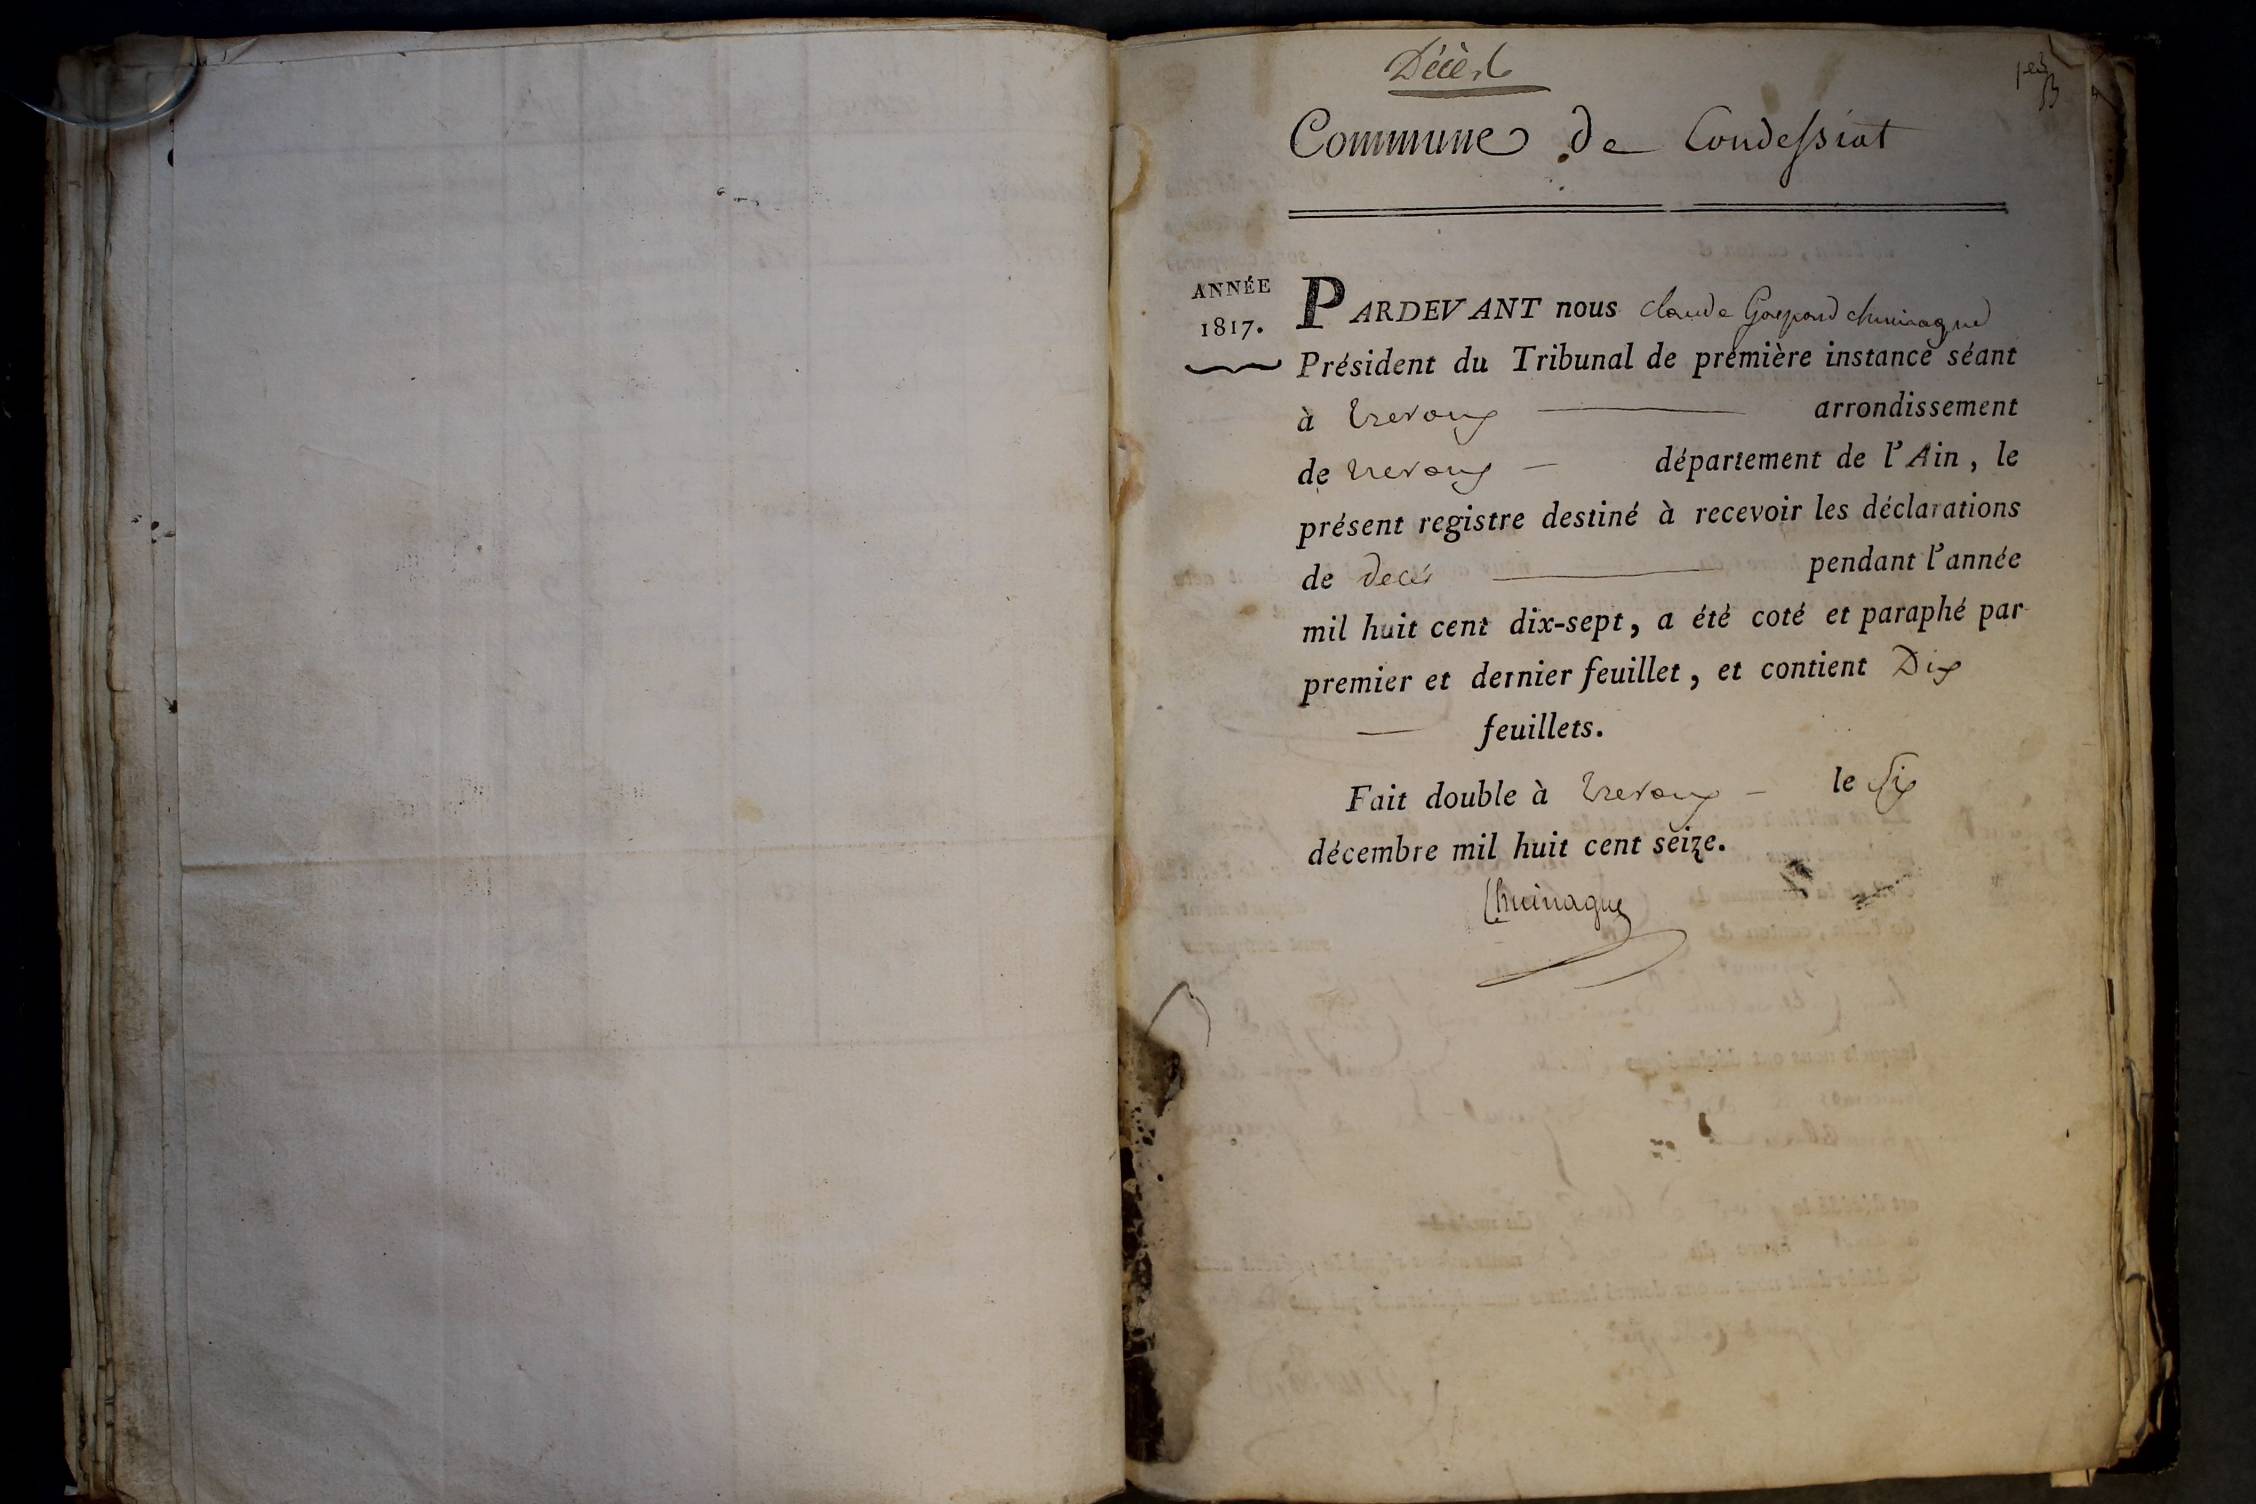 Décès
Commune de Condessiat
ANNÉE
1817.
PARDEVANT nous Claude Gaspard Chuinague
Président du Tribunal de première instance séant
à Trevoux arrondissement
de Trevoux département de l'Ain, le
présent registre destiné à recevoir les déclarations
de decés pendant l'année
mil huit cent dix-sept, a été coté et paraphé par
premier et dernier feuillet, et contient Dix
feuillets.
Fait double à Trevoux le Six
décembre mil huit cent seize.
Chuinague